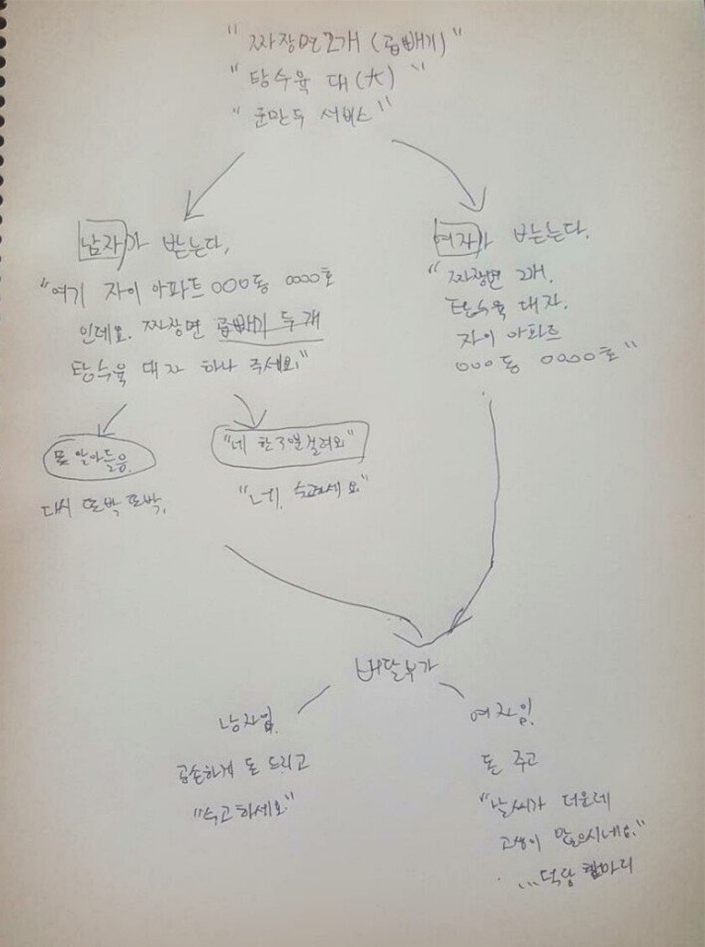 "짜장면 2개 (곱빼기)"
"탕수육 대(大)"
"군만두 서비스"
남자가 받는다.
"여기 자이 아파트 000동 0000호
인데요. 짜장면 곱빼기 두 개
탕수육 대자 하나 주세요."
못 알아들음.
다시 또박 또박.
"네 한 30분걸려요"
"네. 수고하세요."
여자가 받는다.
"짜장면 2개.
탕수육 대자.
자이 아파트
000동 0000호"
배달부가
남자임.
공손하게 돈 드리고
"수고하세요"
여자임.
돈 주고
"날씨가 더운데
고생이 많으시네요."
...덕담 한마리